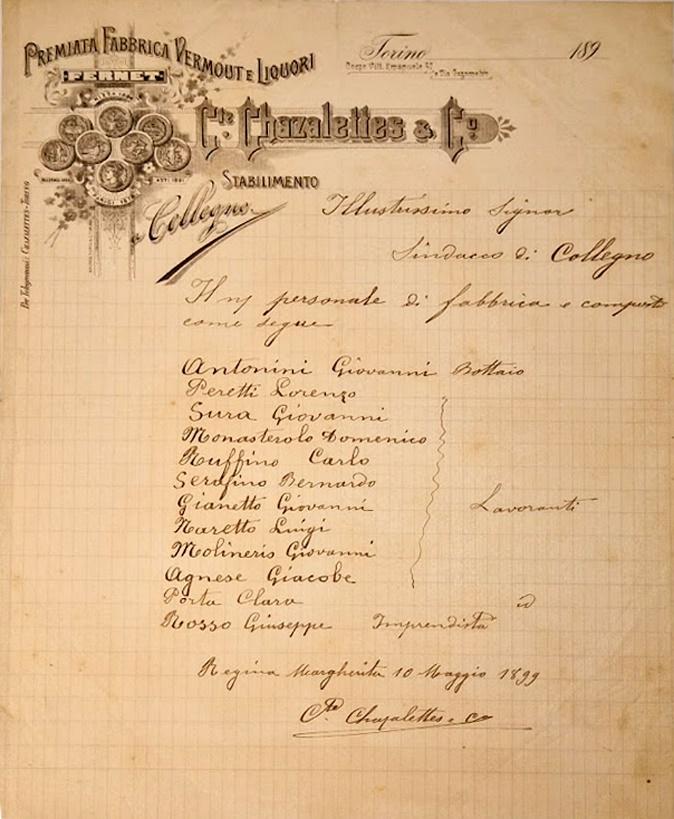 PREMIATA FABBRICA VERMOUT E LIQUORI
FERNET
Torino 189
Corso Vitt. Emanuele
Cte. Chazalettes & Co
STABILIMENTO
a Collegno
Per Telegrammi: CHAZALETTES-TORINO
Illustrissimo Signor
Sindacco di Collegno
Il ns personale di fabbrica e composto
come segue
Antonini Giovanni Bottaio
Peretti Lorenzo
Sura Giovanni
Monasterolo Domenico
Ruffino Carlo
Serafino Bernardo
Gianetto Giovanni Lavoranti
Naretto Luigi
Molineris Giovanni
Agnese Giacobe
Porta Clara id
Rosso Giuseppe Imprendista
Regina Margherita 10 Maggio 1899
Cte. Chazalettes e Co